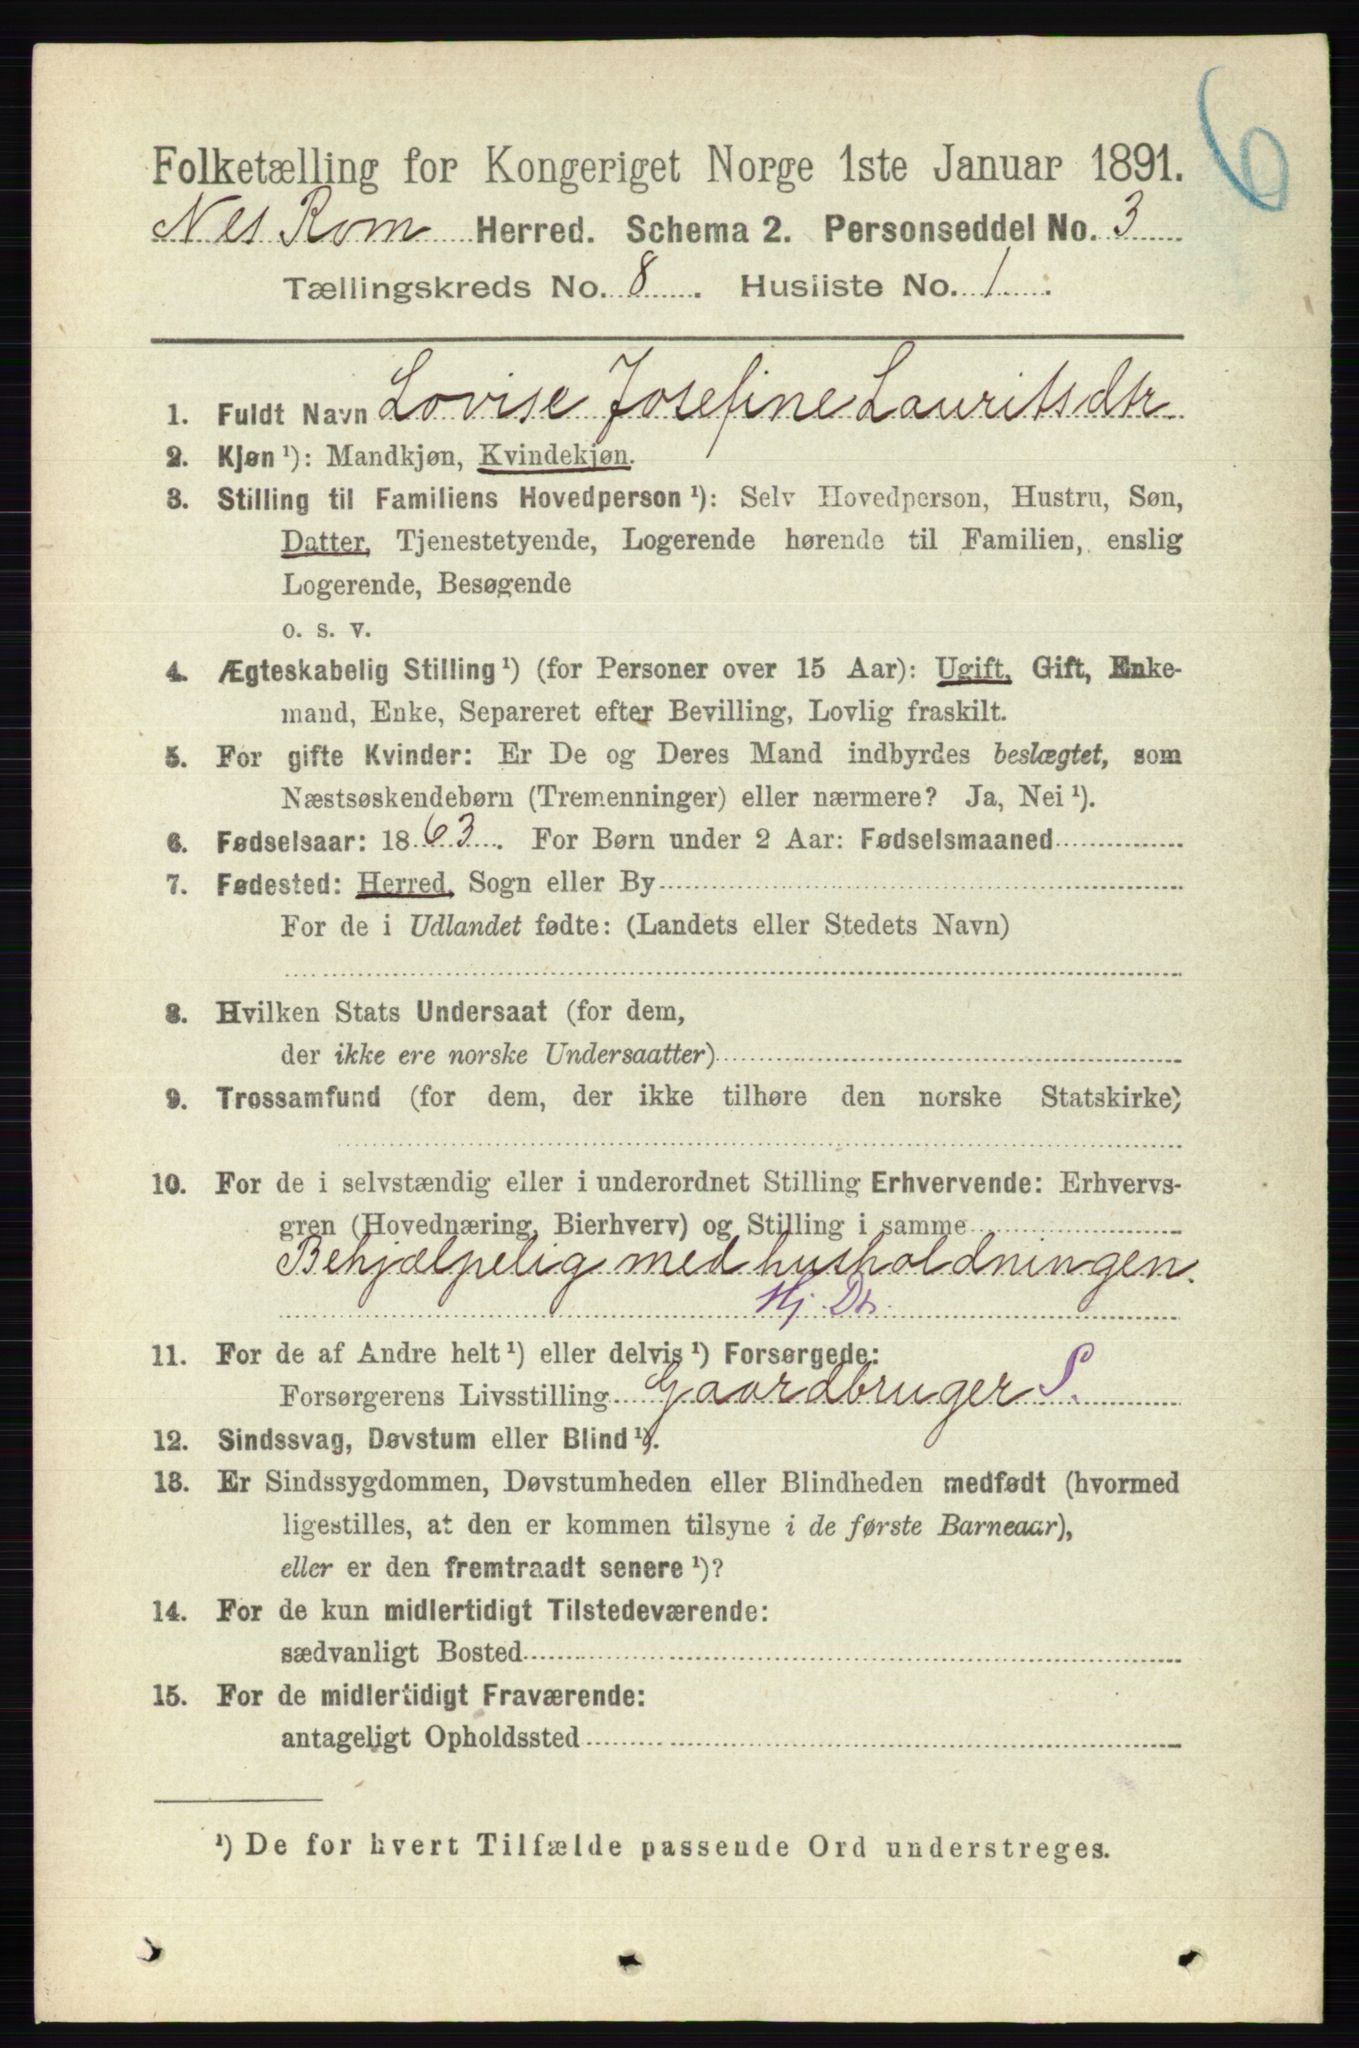 6
Folketælling for Kongeriget Norge 1ste Januar 1891.
Nes Rom Herred. Schema 2. Personseddel No. 3
Tællingskreds No. 8. Husliste No. 1.
1. Fuldt Navn Lovise Josefine Lauritsdtr
2. Kjøn ¹): Mandkjøn, Kvindekjøn.
3. Stilling til Familiens Hovedperson ¹): Selv Hovedperson, Hustru, Søn,
Datter, Tjenestetyende, Logerende hørende til Familien, enslig
Logerende, Besøgende
o. s. v.
4. Ægteskabelig Stilling ¹) (for Personer over 15 Aar): Ugift, Gift, Enke-
mand, Enke, Separeret efter Bevilling, Lovlig fraskilt.
5. For gifte Kvinder: Er De og Deres Mand indbyrdes beslægtet, som
Næstsøskendebørn (Tremenninger) eller nærmere? Ja, Nei ¹).
6. Fødselsaar: 1863. For Børn under 2 Aar: Fødselsmaaned
7. Fødested: Herred, Sogn eller By
For de i Udlandet fødte: (Landets eller Stedets Navn)
8. Hvilken Stats Undersaat (for dem,
der ikke ere norske Undersaatter)
9. Trossamfund (for dem, der ikke tilhøre den norske Statskirke)
10. For de i selvstændig eller i underordnet Stilling Erhvervende: Erhvervs-
gren (Hovednæring, Bierhverv) og Stilling i samme
Behjælpelig med husholdningen.
Hj. Dt.
11. For de af Andre helt ¹) eller delvis ¹) Forsørgede:
Forsørgerens Livsstilling Gaardbruger S.
12. Sindssvag, Døvstum eller Blind ¹).
13. Er Sindssygdommen, Døvstumheden eller Blindheden medfødt (hvormed
ligestilles, at den er kommen tilsyne i de første Barneaar),
eller er den fremtraadt senere ¹)?
14. For de kun midlertidigt Tilstedeværende:
sædvanligt Bosted
15. For de midlertidigt Fraværende:
antageligt Opholdssted
¹) De for hvert Tilfælde passende Ord understreges.